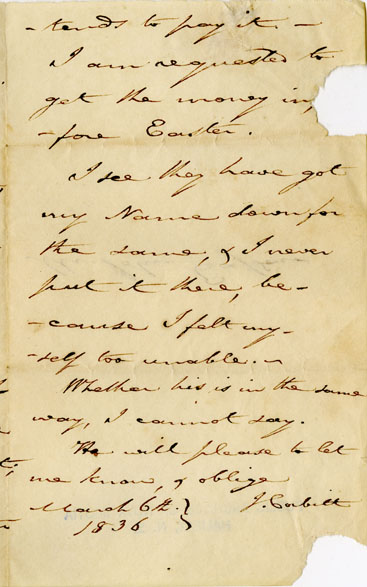 -tends to pay it. -
I am requested to
get the money in,
-fore Easter.
I see they have got
my Name down for
the same, & I never
put it there, be-
-cause I felt my-
-self too unable. -
Whether his is in the same
way, I cannot say.
He will please to let
me know, & oblige
March 6th. } J. Corbitt
1836